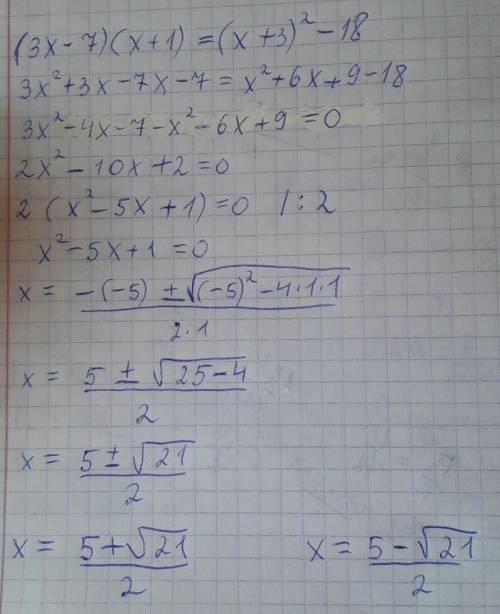 (3x-7)(x+1) = (x+3)² - 18
3x² + 3x - 7x - 7 = x² + 6x + 9 - 18
3x² - 4x - 7 - x² - 6x + 9 = 0
2x² - 10x + 2 = 0
2 (x² - 5x + 1) = 0 / : 2
x² - 5x + 1 = 0
x = (-(-5) ± √((-5)² - 4·1·1)) / (2·1)
x = (5 ± √(25-4)) / 2
x = (5 ± √21) / 2
x = (5 + √21) / 2 x = (5 - √21) / 2